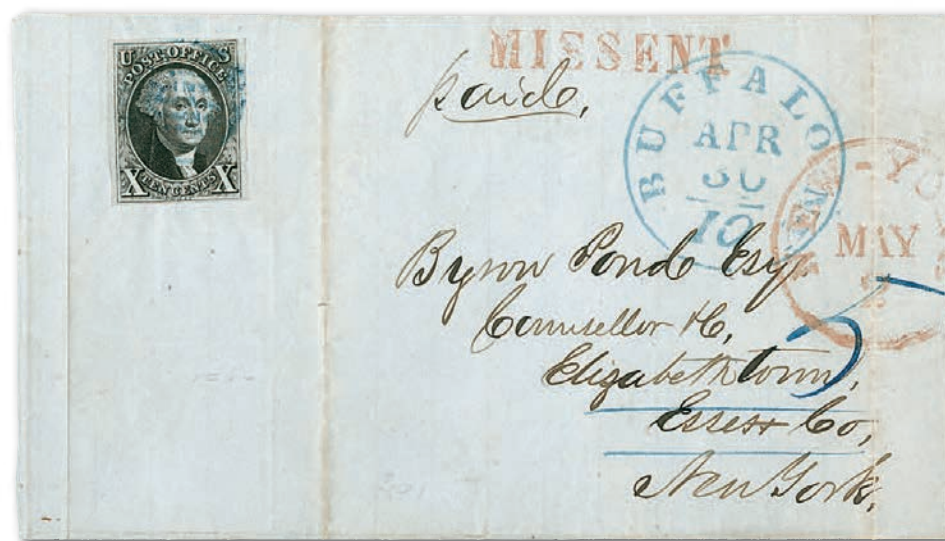 U S
POST OFFICE
X TEN CENTS X
MISSENT
paid,
BUFFALO
APR
30
10
MAY
Byron Pond Esq.
Counsellor &c,
Elizabethtown,
Essex Co,
New York.
5